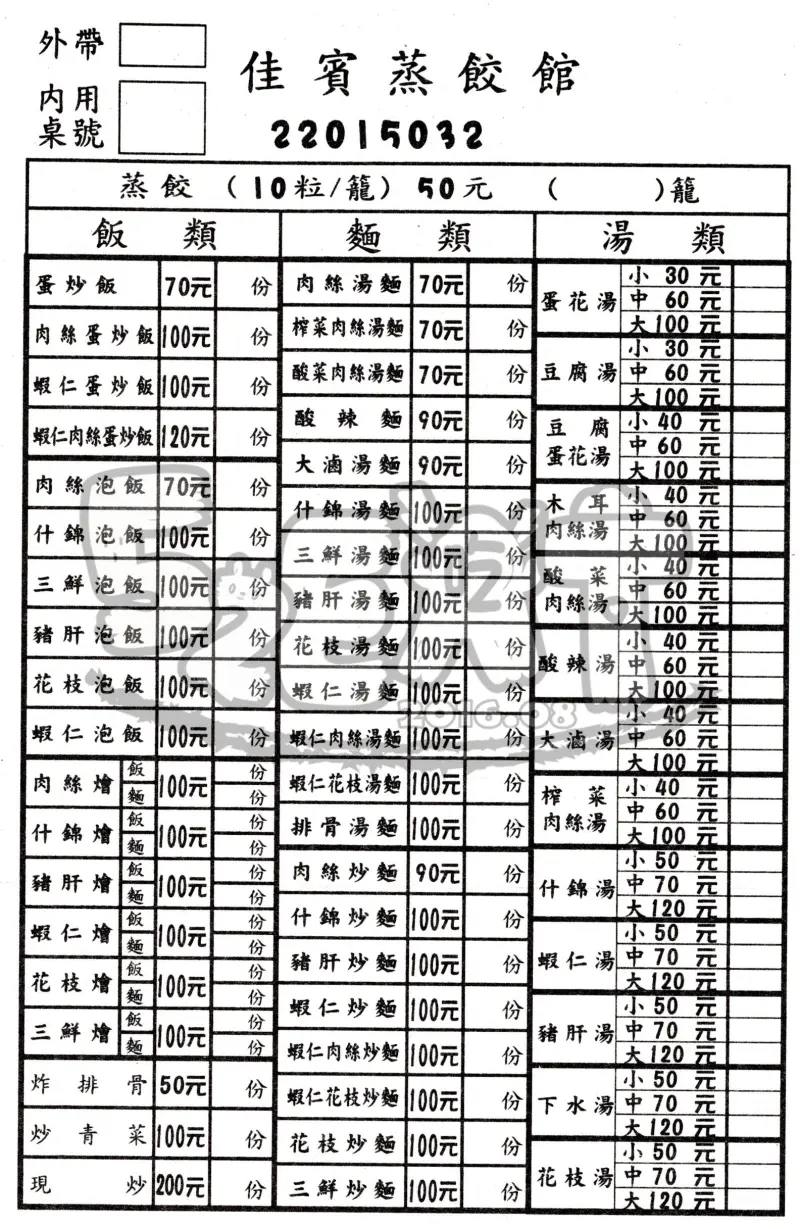 外帶
內用
桌號
佳賓蒸餃館
22015032
蒸餃（10粒/籠）50元（　　）籠
飯類
蛋炒飯 70元 份
肉絲蛋炒飯 100元 份
蝦仁蛋炒飯 100元 份
蝦仁肉絲蛋炒飯 120元 份
肉絲泡飯 70元 份
什錦泡飯 100元 份
三鮮泡飯 100元 份
豬肝泡飯 100元 份
花枝泡飯 100元 份
蝦仁泡飯 100元 份
肉絲燴 飯 麵 100元 份 份
什錦燴 飯 麵 100元 份 份
豬肝燴 飯 麵 100元 份 份
蝦仁燴 飯 麵 100元 份 份
花枝燴 飯 麵 100元 份 份
三鮮燴 飯 麵 100元 份 份
炸排骨 50元 份
炒青菜 100元 份
現炒 200元 份
麵類
肉絲湯麵 70元 份
榨菜肉絲湯麵 70元 份
酸菜肉絲湯麵 70元 份
酸辣麵 90元 份
大滷湯麵 90元 份
什錦湯麵 100元 份
三鮮湯麵 100元 份
豬肝湯麵 100元 份
花枝湯麵 100元 份
蝦仁湯麵 100元 份
蝦仁肉絲湯麵 100元 份
蝦仁花枝湯麵 100元 份
排骨湯麵 100元 份
肉絲炒麵 90元 份
什錦炒麵 100元 份
豬肝炒麵 100元 份
蝦仁炒麵 100元 份
蝦仁肉絲炒麵 100元 份
蝦仁花枝炒麵 100元 份
花枝炒麵 100元 份
三鮮炒麵 100元 份
湯類
蛋花湯
小 30元
中 60元
大 100元
豆腐湯
小 30元
中 60元
大 100元
豆腐
蛋花湯
小 40元
中 60元
大 100元
木耳
肉絲湯
小 40元
中 60元
大 100元
酸菜
肉絲湯
小 40元
中 60元
大 100元
酸辣湯
小 40元
中 60元
大 100元
大滷湯
小 40元
中 60元
大 100元
榨菜
肉絲湯
小 40元
中 60元
大 100元
什錦湯
小 50元
中 70元
大 120元
蝦仁湯
小 50元
中 70元
大 120元
豬肝湯
小 50元
中 70元
大 120元
下水湯
小 50元
中 70元
大 120元
花枝湯
小 50元
中 70元
大 120元
2016.08